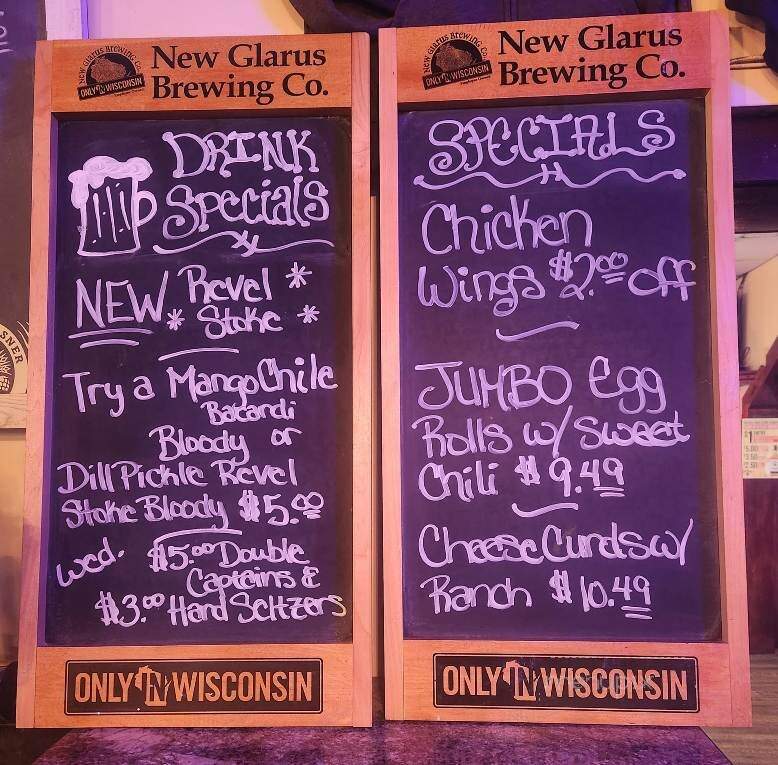 New Glarus
Brewing Co.
NEW GLARUS BREWING CO.
ONLY IN WISCONSIN
DRINK
Specials
NEW Revel *
* Stoke *
Try a Mango Chile
Bacardi
Bloody or
Dill Pickle Revel
Stoke Bloody $5.00
Wed. $5.00 Double
Captains &
$3.00 Hard Seltzers
ONLY IN WISCONSIN
New Glarus
Brewing Co.
NEW GLARUS BREWING CO.
ONLY IN WISCONSIN
SPECIALS
Chicken
Wings $2.00 off
JUMBO Egg
Rolls w/ Sweet
Chili $9.49
Cheese Curds w/
Ranch $10.49
ONLY IN WISCONSIN
SNER